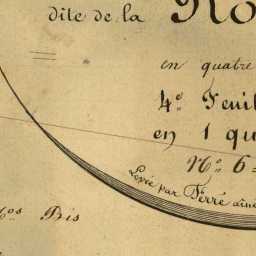 dite de la Ro
en quatre
4.e Feuil
en 1 qu
N.o 6=
Levée par Ferré aîné
Nos Bis